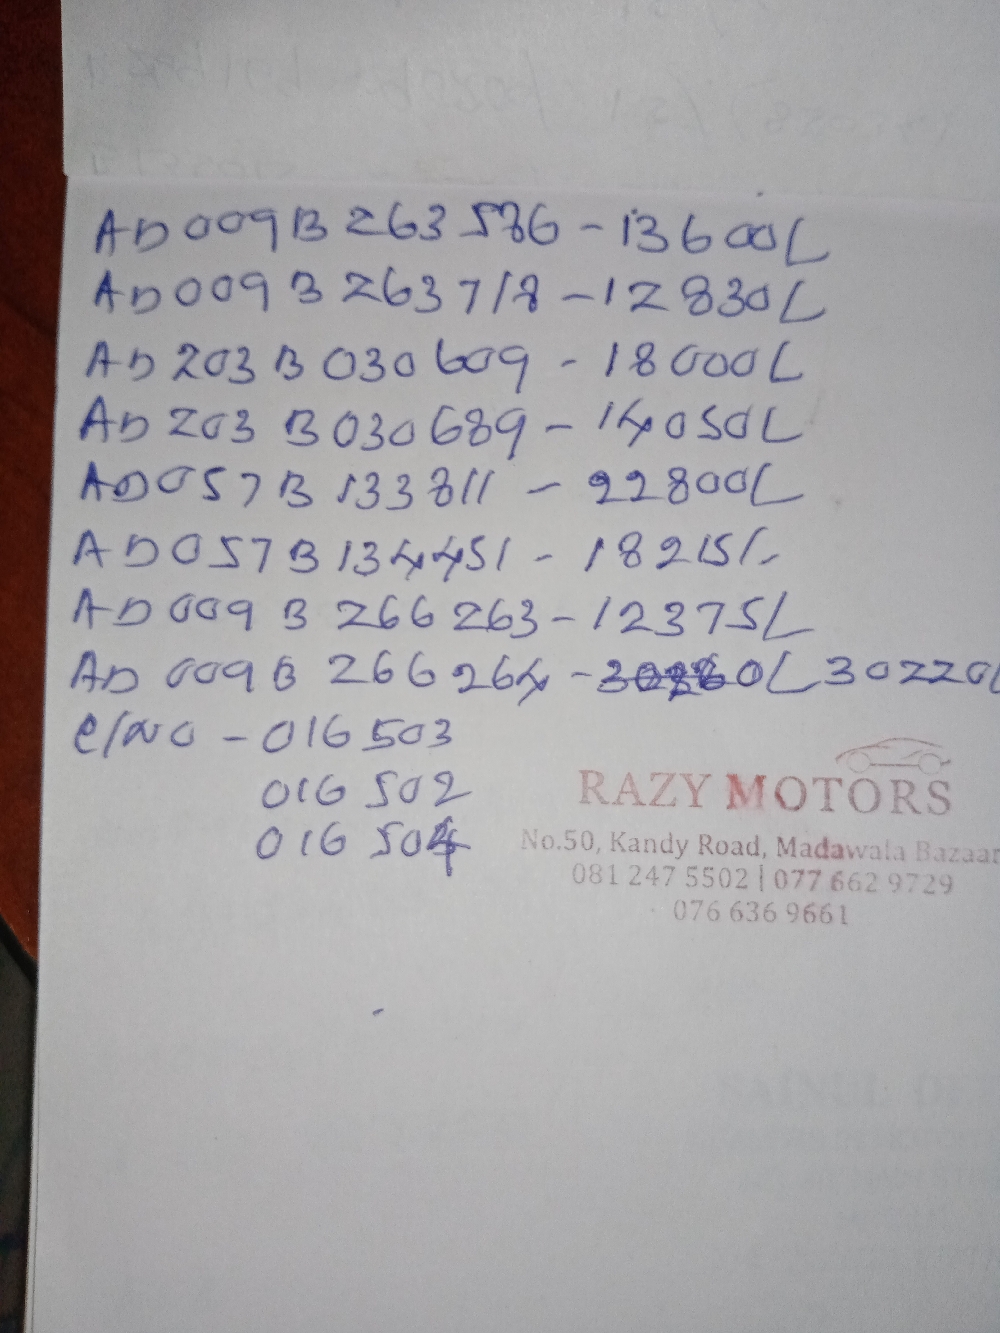 AD009B 263586 - 13600L
AD009B 263718 - 12830L
AD 203 B 030609 - 18000L
AD 203 B 030689 - 14050L
AD057B 133811 - 22800L
AD057B 134451 - 18215L
AD 009 B 266263 - 12375L
AD 009 B 266264 - 30220L
e/no - 016503
016 502
016 504
RAZY MOTORS
No.50, Kandy Road, Madawala Bazaar
081 247 5502 | 077 662 9729
076 636 9661